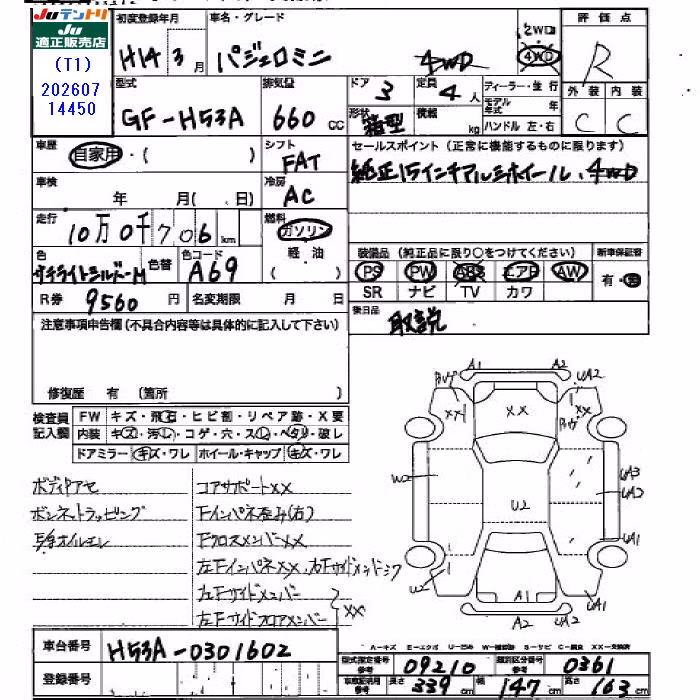 Juテントリ
Ju
適正販売店
(T1)
202607
14450
初度登録年月
H14年3月
車名・グレード
パジェロミニ 4WD
2WD
4WD
評価点
R
型式
GF-H53A
排気量
660cc
ドア
3
定員
4人
ディーラー・並行
モデル年式 年
ハンドル 左・右
形状
箱型
積載
kg
外装 内装
C C
車歴
自家用・( )
シフト
FAT
セールスポイント(正常に機能するものに限ります)
純正15インチアルミホイール、4WD
車検
年 月( . 日)
冷房
AC
走行
10万0千706km
燃料
ガソリン
軽・油
( )
色
サテライトシルバーM
色替
色コード
A69
装備品(純正品に限り○をつけてください)
PS PW ABS エアB AW
SR ナビ TV カワ
新車保証書
有・無
R券
9560円
名変期限 月 日
後日品
取説
注意事項申告欄(不具合内容等は具体的に記入して下さい)
修復歴 有 (箇所 )
検査員
記入欄
FW キズ・飛石・ヒビ割・リペア跡・X要
内装 キズ・汚レ・コゲ・穴・スレ・ヘタリ・破レ
ドアミラー キズ・ワレ ホイール・キャップ キズ・ワレ
ボディアセ
ボンネットラッピング
コアサポートXX
Fインパネ歪み(右)
FクロスメンバーXX
左FインパネXX、右Fサイドメンバー
左Fサイドメンバー
左Fサイドフロアメンバー
XX
A1 A2
UA2
XX XX XX
W2 U2 UA3
UA2
W2 A1 UA1
A2 UA1
車台番号
H53A-0301602
登録番号
A-キズ E-エクボ U-凹み W-補修跡 S-サビ C-腐食 XX-交換済
型式指定番号
参考
09210
類別区分番号
参考
0361
車庫証明用
参考
長さ 339cm 幅 147cm 高さ 163cm